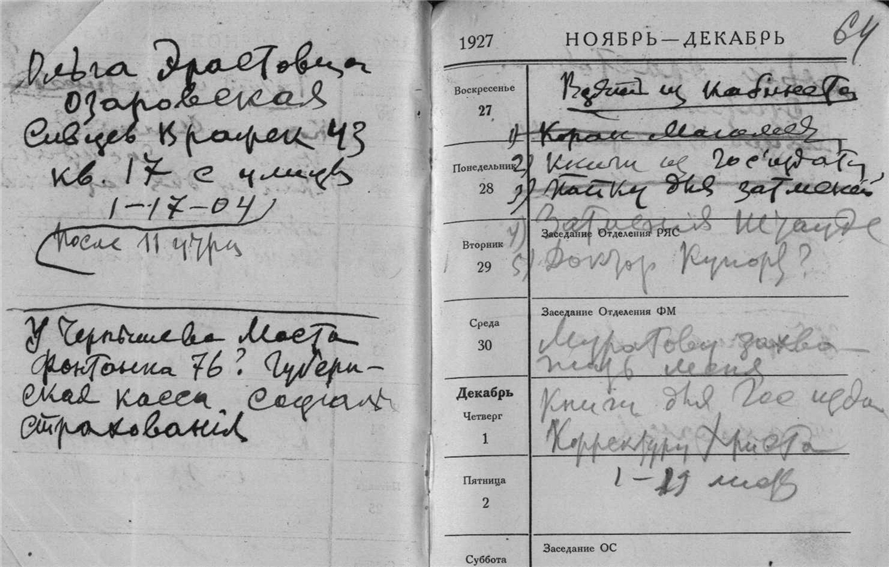 Ольга Эрастовна
Озаровская
Сивцев Вражек 43
кв. 17 с улицы
1-17-04
после 11 утра
У Чернышева Моста
Фонтанка 76? Губерн-
ская касса социаль
страхования
1927 НОЯБРЬ—ДЕКАБРЬ 64
Воскресенье
27
Взять из кабинета
1) Коран
Понедельник
28
2) Книги из Гос'издату
3) Папку для затмений
4) Затмения
Заседание Отделения РЯС
Вторник
29
5) Доктор ?
Заседание Отделения ФМ
Среда
30
Муратову захва-
тить меня
Декабрь
Четверг
1
Книги для Гос изда
Корректуру Христа
1-19 лист
Пятница
2
Суббота
Заседание ОС